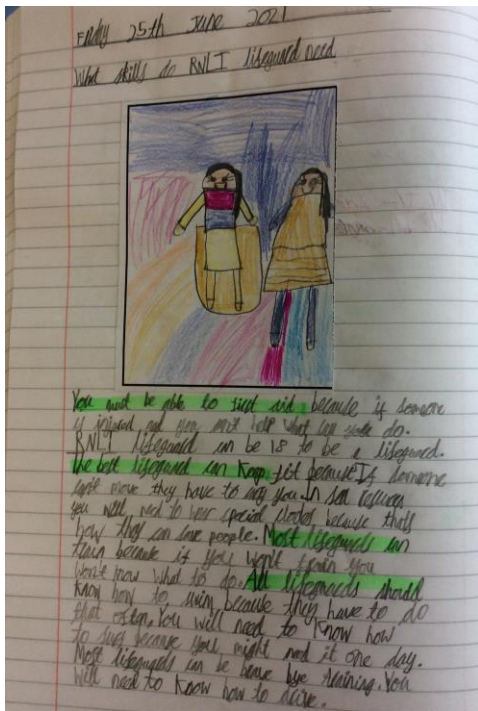 Friday 25th June 2021
What skills do RNLI lifeguard need
You must be able to first aid because if someone
is injured and you can't help what can you do.
RNLI lifeguard can be 18 to be a lifeguard.
The best lifeguard can keep fit because If someone
can't move they have to you. In sea rescues
you will need to wer special clothes because that's
how they can save people. Most lifeguards can
train because if you won't train you
won't know what to do. All lifeguards should
know how to swim because they have to do
that often. You will need to know how
to surf because you might need it one day.
Most lifeguards can be brave bye training. You
will need to know how to drive.